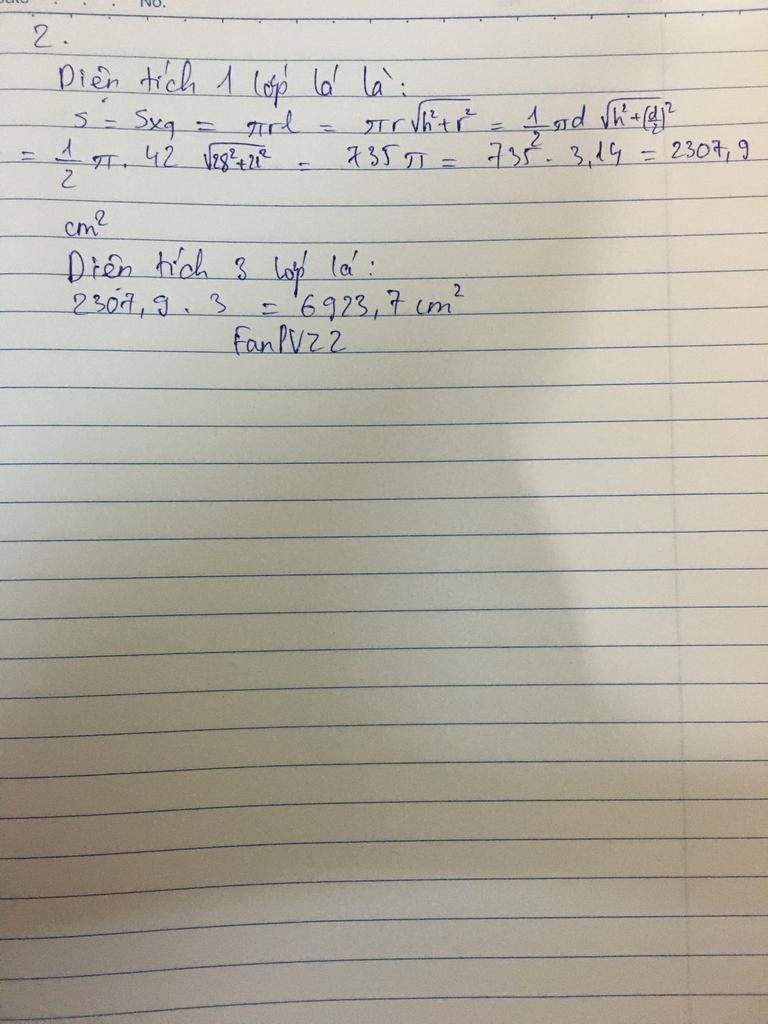 No.
2.
Diện tích 1 lớp lá là:
S = Sxq = πrl = πr√(h²+r²) = 1/2 πd √(h²+(d/2)²)
= 1/2 π. 42 √(28²+21²) = 735 π = 735 . 3,14 = 2307,9
cm²
Diện tích 3 lớp lá:
2307,9 . 3 = 6923,7 cm²
FanPVZ2